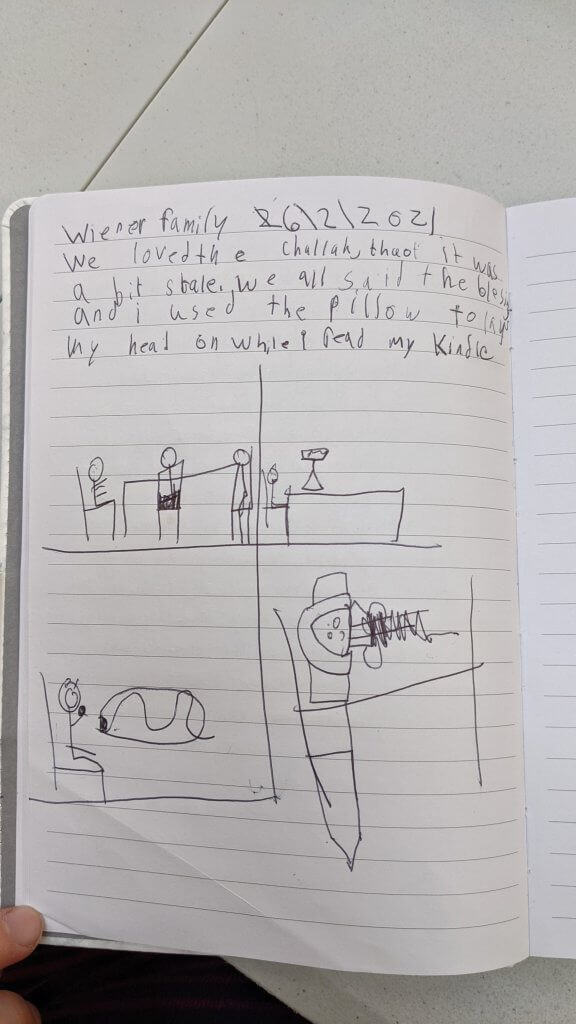 Wiener family 26\2\2021
We loved the challah, thaot it was
a bit stale. we all said the blesig
and i used the pillow to lay
my head on while i read my Kindle